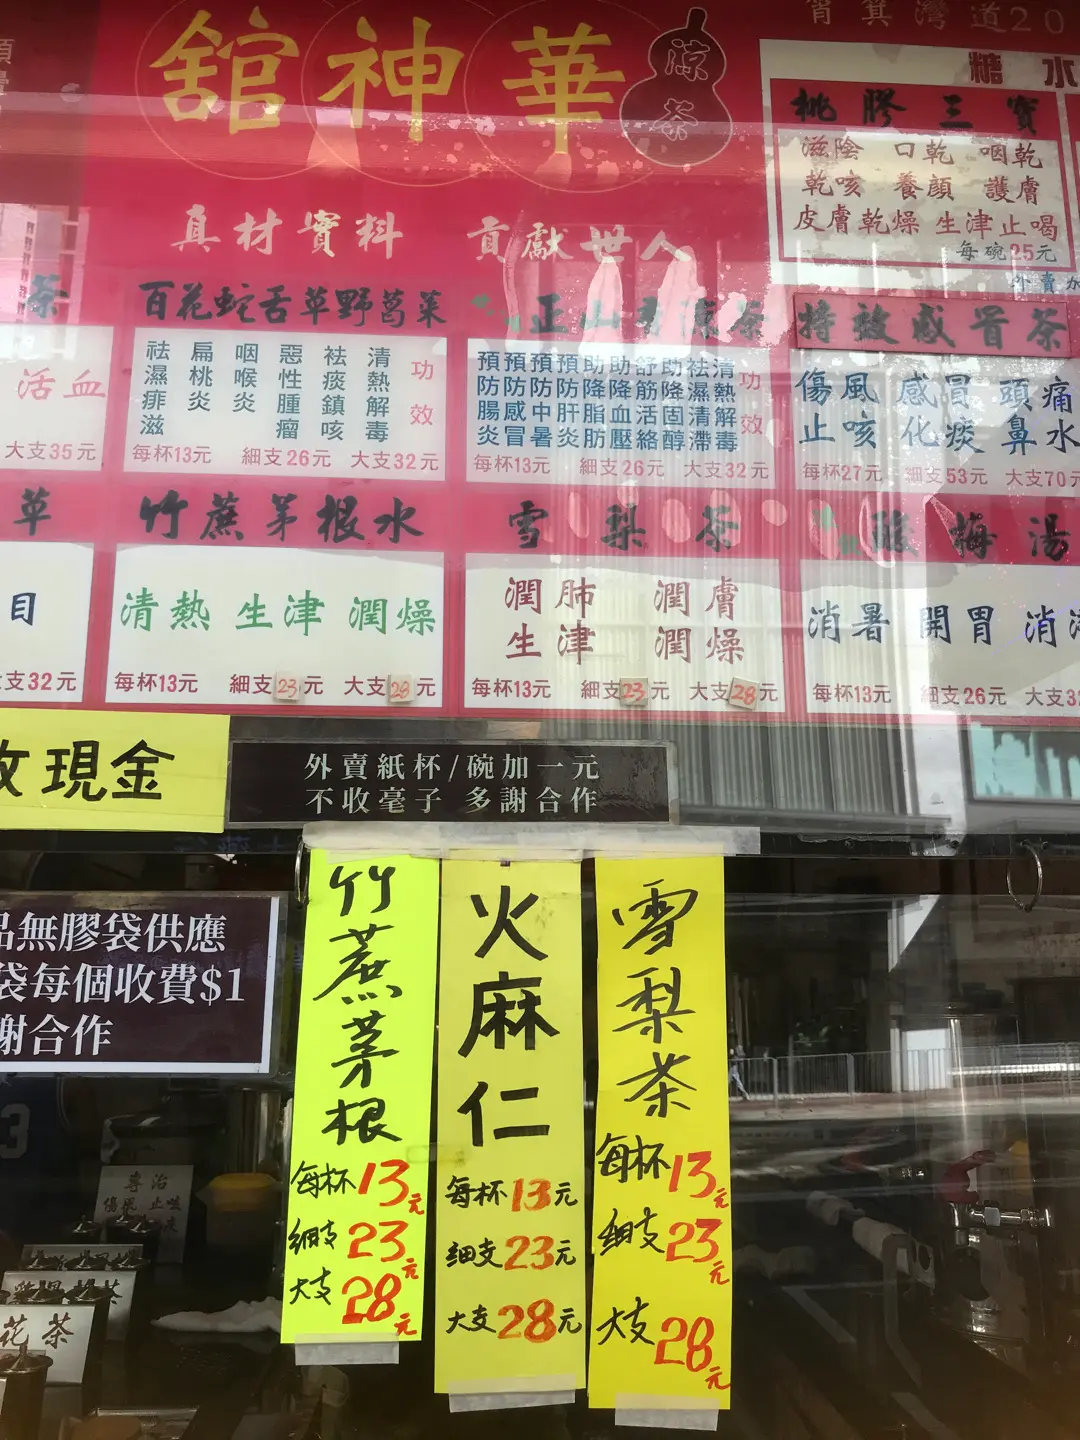 筲箕灣道20
舘神華
涼茶
糖水
桃膠三寶
滋陰 口乾 咽乾
乾咳 養顏 護膚
皮膚乾燥 生津止喝
每碗25元
外賣加
真材實料 貢獻世人
茶
活血
大支35元
百花蛇舌草野葛菜
清熱解毒
祛痰鎮咳
惡性腫瘤
咽喉炎
扁桃炎
祛濕痱滋
功效
每杯13元 細支26元 大支32元
正山 涼茶
清熱解毒
祛濕清滯
助降固醇
舒筋活絡
助降血壓
助降脂肪
預防肝炎
預防中暑
預防感冒
預防腸炎
功效
每杯13元 細支26元 大支32元
特效感冒茶
傷風 感冒 頭痛
止咳 化痰 鼻水
每杯27元 細支53元 大支70元
草
目
支32元
竹蔗茅根水
清熱 生津 潤燥
每杯13元 細支23元 大支28元
雪梨茶
潤肺 潤膚
生津 潤燥
每杯13元 細支23元 大支28元
酸梅湯
消暑 開胃 消
每杯13元 細支26元 大支3
收現金
外賣紙杯/碗加一元
不收毫子 多謝合作
品無膠袋供應
袋每個收費$1
謝合作
竹蔗茅根
每杯13元
細支23元
大支28元
火麻仁
每杯13元
细支23元
大支28元
雪梨茶
每杯13元
細支23元
大支28元
專治
傷風 止咳
花茶